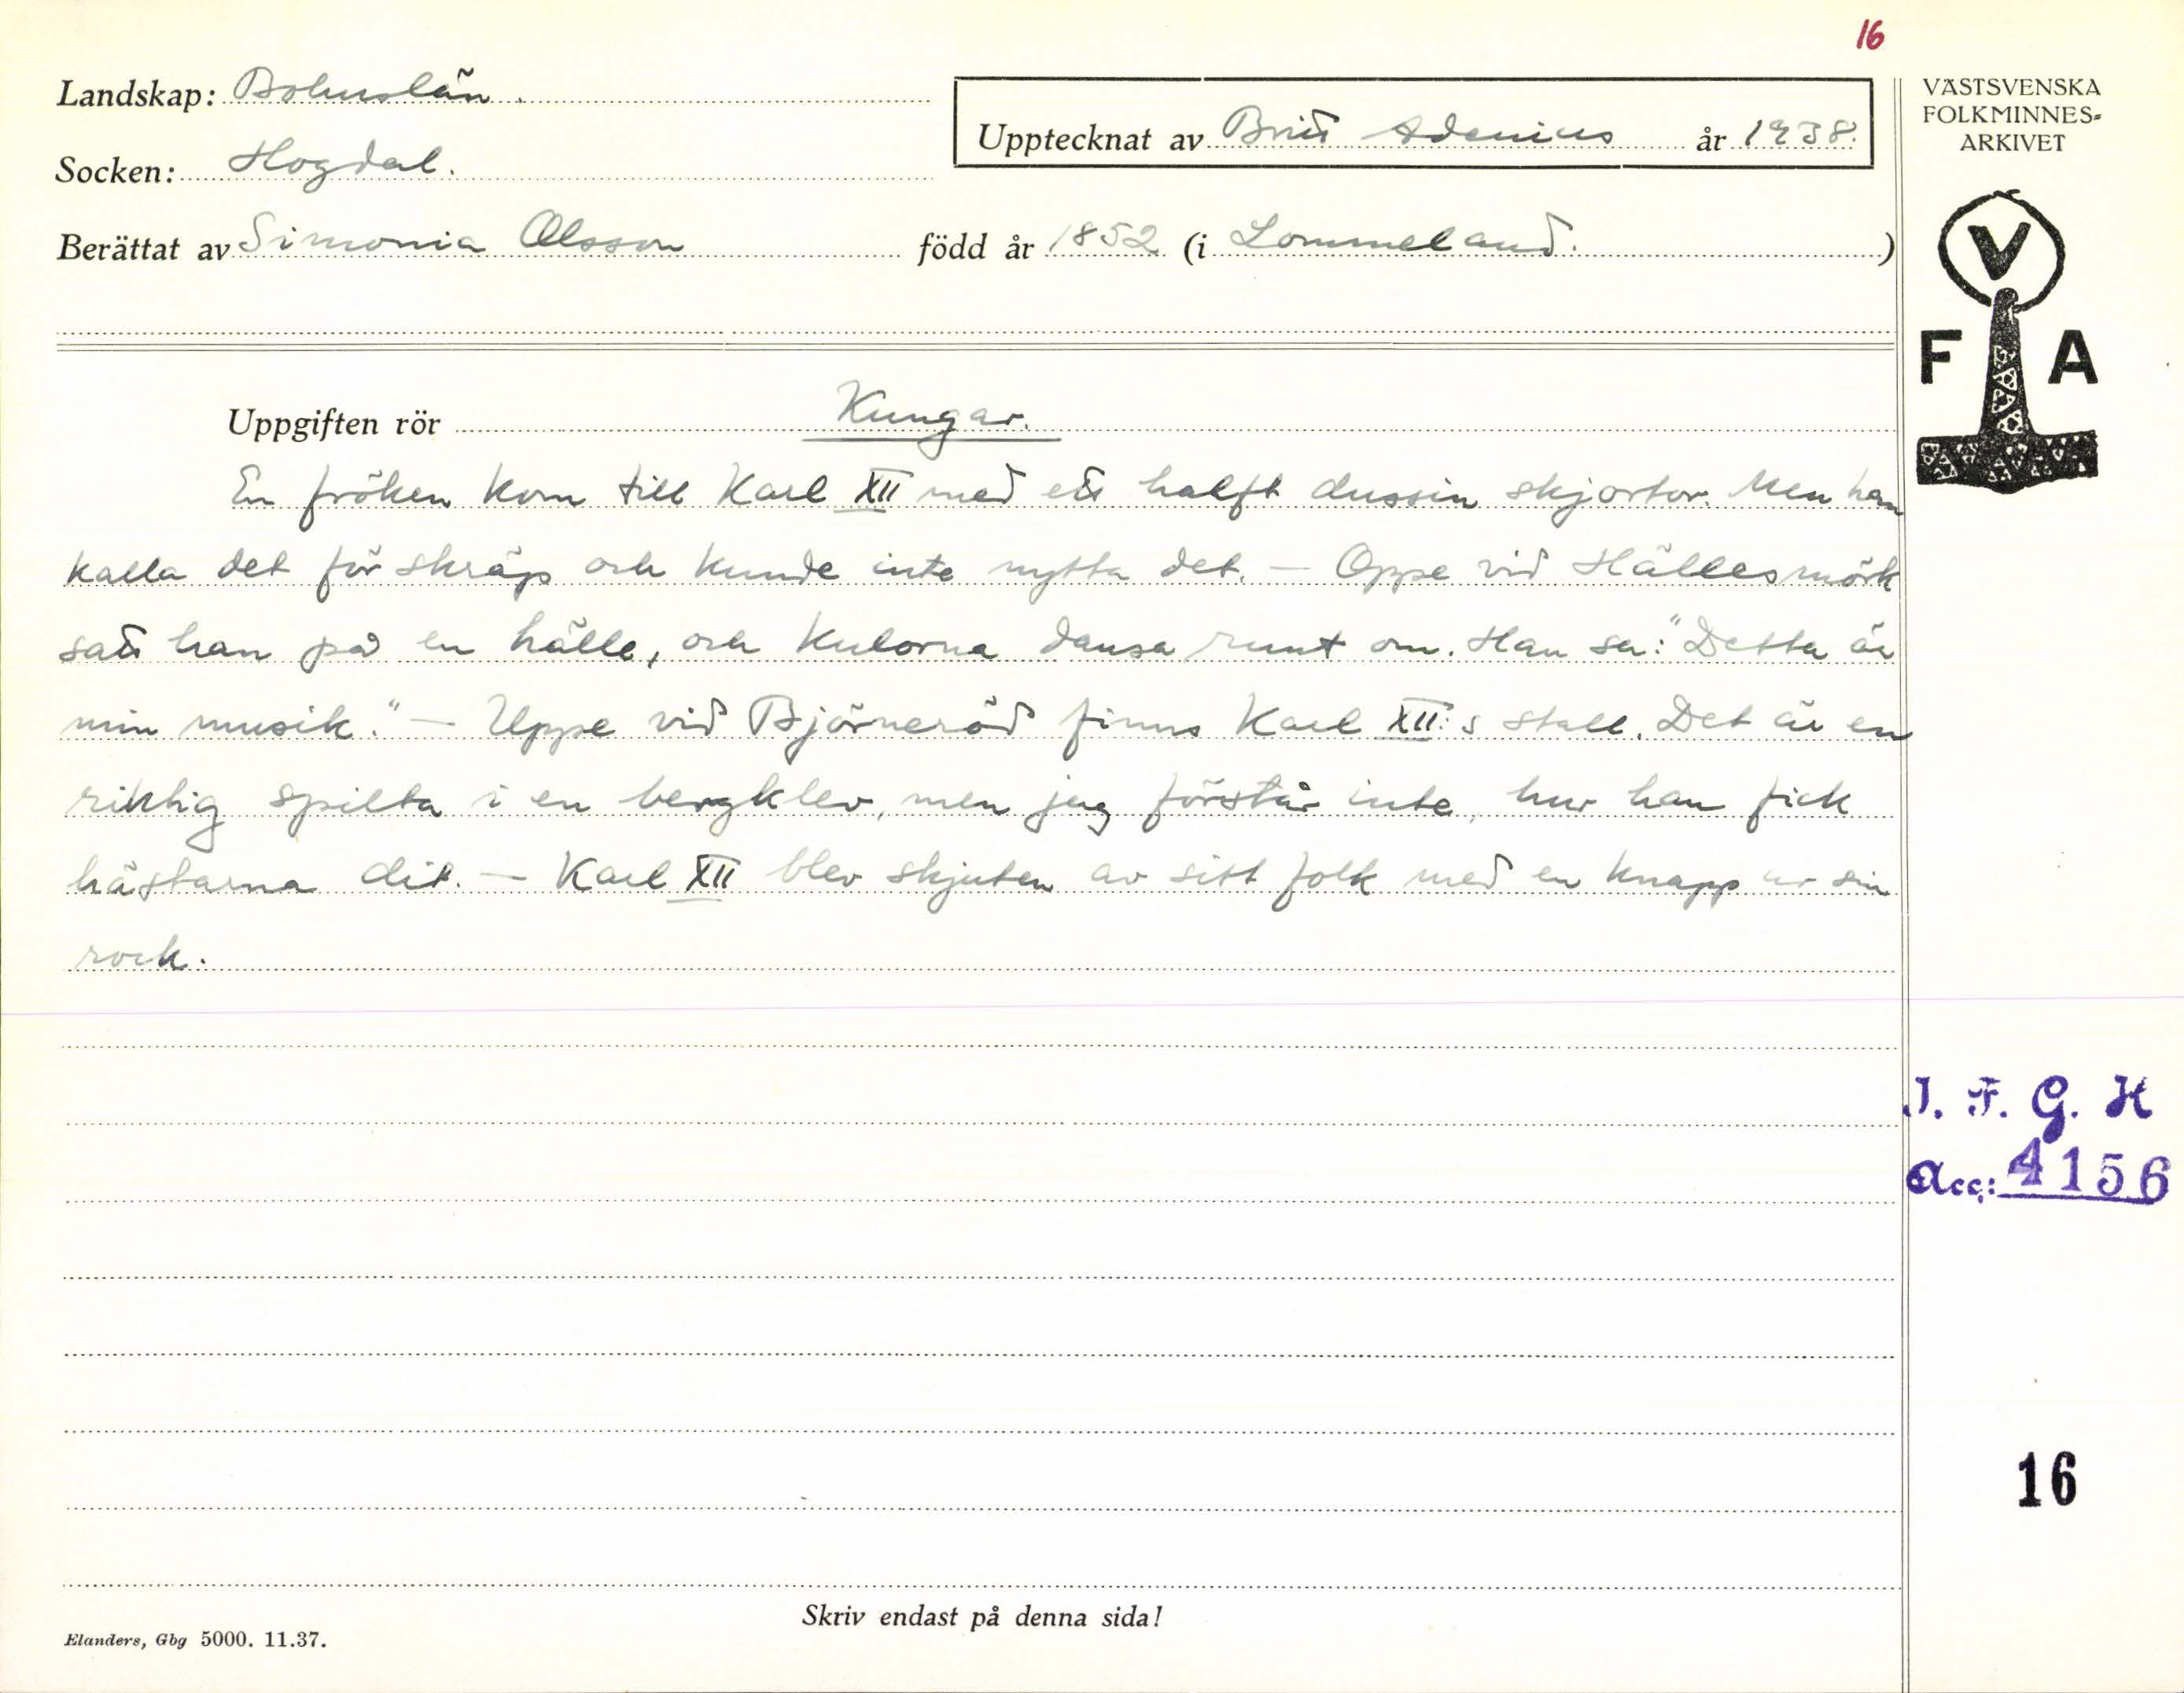 16
Landskap: Bohuslän.
Upptecknat av Britt Adenius år 1938.
Socken: Hogdal.
Berättat av Simonia Olsson född år 1852 (i Lommeland. )
VÄSTSVENSKA
FOLKMINNES-
ARKIVET
V
F A
Uppgiften rör Kungar.
En fröken kom till Karl XII med ett halft dussin skjortor. Men han
kalla det för skräp och kunde inte nytta det. — Oppe vid Hällesmörk
satt han på en hälle, och kulorna dansa runt om. Han sa: "Detta är
min musik." — Uppe vid Björneröd finns Karl XII:s stall. Det är en
riktig spilta i en bergklev, men jag förstår inte, hur han fick
hästarna dit. — Karl XII blev skjuten av sitt folk med en knapp ur sin
rock.
I. F. G. H
Acc: 4156
16
Skriv endast på denna sida!
Elanders, Gbg 5000. 11.37.